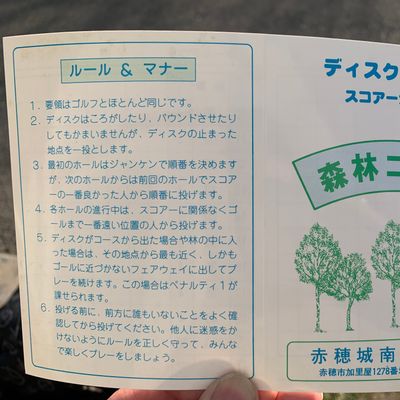 ルール & マナー
1. 要領はゴルフとほとんど同じです。
2. ディスクはころがしたり、バウンドさせたり
してもかまいませんが、ディスクの止まった
地点を一投とします。
3. 最初のホールはジャンケンで順番を決めます
が、次のホールからは前回のホールでスコア
ーの一番良かった人から順番に投げます。
4. 各ホールの進行中は、スコアーに関係なくゴ
ールまで一番遠い位置の人から投げます。
5. ディスクがコースから出た場合や林の中に入
った場合は、その地点から最も近く、しかも
ゴールに近づかないフェアウェイに出してプ
レーを続けます。この場合はペナルティ1が
課せられます。
6. 投げる前に、前方に誰もいないことをよく確
認してから投げてください。他人に迷惑をか
けないようにルールを正しく守って、みんな
で楽しくプレーをしましょう。
ディスク
スコアー
森林コ
赤穂城南
赤穂市加里屋1278番